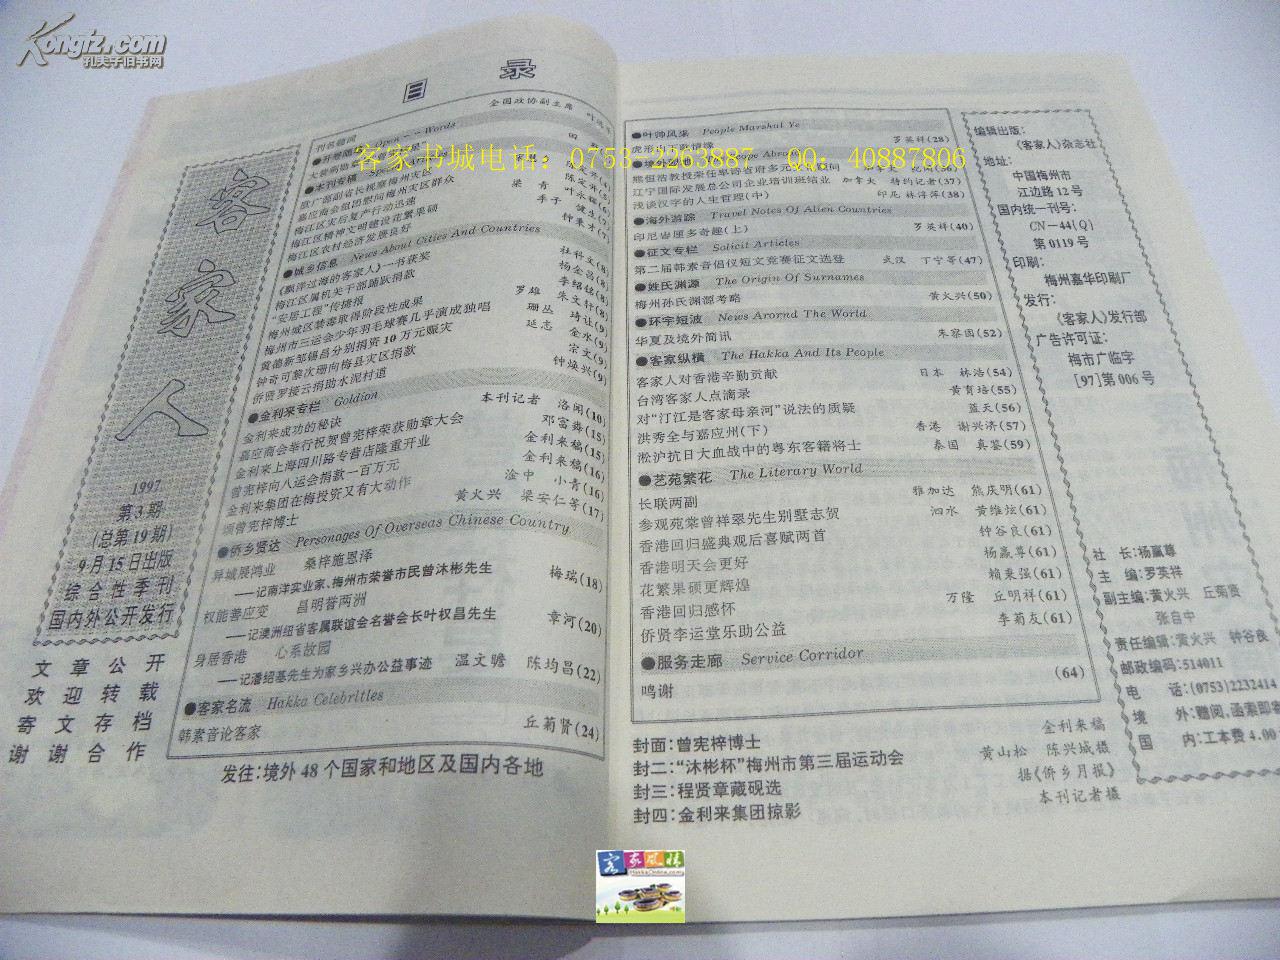 Kongfz.com
孔夫子旧书网
客家书城电话：0753-2263887 QQ：40887806
目 录
客家人
1997
第3期
(总第19期)
9月15日出版
综合性季刊
国内外公开发行
文章公开
欢迎转载
寄文存档
谢谢合作
刊名题词 全国政协副主席
●本刊专稿
嘉应商会组团慰问梅州灾区群众
梅江区灾后复产行动迅速
梅江区精神文明建设花繁果硕
梅江区农村经济发展良好
●城乡信息 News About Cities And Countries
《飘洋过海的客家人》一书获奖 杜科文(8)
梅江区属机关干部踊跃捐款 杨金昌(8)
“安居工程”传捷报
梅州城区禁毒取得阶段性成果
梅州市三运会少年羽毛球赛几乎演成独唱
黄德新邹锡昌分别捐资10万元赈灾
钟奇可黎次珊向梅县灾区捐款
侨贤罗接云捐助水泥村道 钟焕兴(9)
●金利来专栏 Goldion
金利来成功的秘诀 本刊记者 洛闻(10)
嘉应商会举行祝贺曾宪梓荣获勋章大会 邓富舜(15)
金利来上海四川路专营店隆重开业 金利来稿(15)
曾宪梓向八运会捐款一百万元 金利来稿(16)
金利来集团在梅投资又有大动作 淦中 小青(16)
颂曾宪梓博士 黄火兴 梁安仁等(17)
●侨乡贤达 Personages Of Overseas Chinese Country
异域展鸿业 桑梓施恩泽
——记南洋实业家、梅州市荣誉市民曾沐彬先生 梅瑞(18)
权能善应变 昌明誉两洲
——记澳洲纽省客属联谊会名誉会长叶权昌先生 章河(20)
身居香港 心系故园
——记潘绍基先生为家乡兴办公益事迹 温文瞻 陈均昌(22)
●客家名流 Hakka Celebrities
韩素音论客家 丘菊贤(24)
发往：境外48个国家和地区及国内各地
●叶帅风采 People Marshal Ye
虎形山下歌情缘 罗英祥(28)
●境外
熊恒浩教授荣任卑诗省府多元文化顾问
辽宁国际发展总公司企业培训班结业 加拿大 特约记者(37)
浅谈汉字的人生哲理(中) 印尼 林浮萍(38)
●海外游踪 Travel Notes Of Alien Countries
印尼峇厘多奇趣(上) 罗英祥(40)
●征文专栏 Solicit Articles
第二届韩素音倡仪短文竞赛征文选登 武汉 丁宁等(47)
●姓氏渊源 The Origin Of Surnames
梅州孙氏渊源考略 黄火兴(50)
●环宇短波 News Arornd The World
华夏及境外简讯 朱容园(52)
●客家纵横 The Hakka And Its People
客家人对香港辛勤贡献 日本 林浩(54)
台湾客家人点滴录 黄育培(55)
对“汀江是客家母亲河”说法的质疑 蓝天(56)
洪秀全与嘉应州(下) 香港 谢兴济(57)
淞沪抗日大血战中的粤东客籍将士 泰国 真鉴(59)
●艺苑繁花 The Literary World
长联两副 雅加达 熊庆明(61)
参观苑棠曾祥翠先生别墅志贺 泗水 黄维炫(61)
香港回归盛典观后喜赋两首 钟谷良(61)
香港明天会更好 杨赢尊(61)
花繁果硕更辉煌 赖秉强(61)
香港回归感怀 万隆 丘明祥(61)
侨贤李运堂乐助公益 李菊友(61)
●服务走廊 Service Corridor
鸣谢 (64)
封面：曾宪梓博士 金利来稿
封二：“沐彬杯”梅州市第三届运动会 黄山松 陈兴城摄
封三：程贤章藏砚选 据《侨乡月报》
封四：金利来集团掠影 本刊记者摄
编辑出版：
《客家人》杂志社
地址：
中国梅州市
江边路12号
国内统一刊号：
CN-44(Q)
第0119号
印刷：
梅州嘉华印刷厂
发行：
《客家人》发行部
广告许可证：
梅市广临字
[97]第006号
社 长：杨赢尊
主 编：罗英祥
副主编：黄火兴 丘菊贤
张自中
责任编辑：黄火兴 钟谷良
邮政编码：514011
电 话：(0753)2232414
境 外：赠阅，函索即寄
国 内：工本费4.00
客家风情
HakkaOnline.com